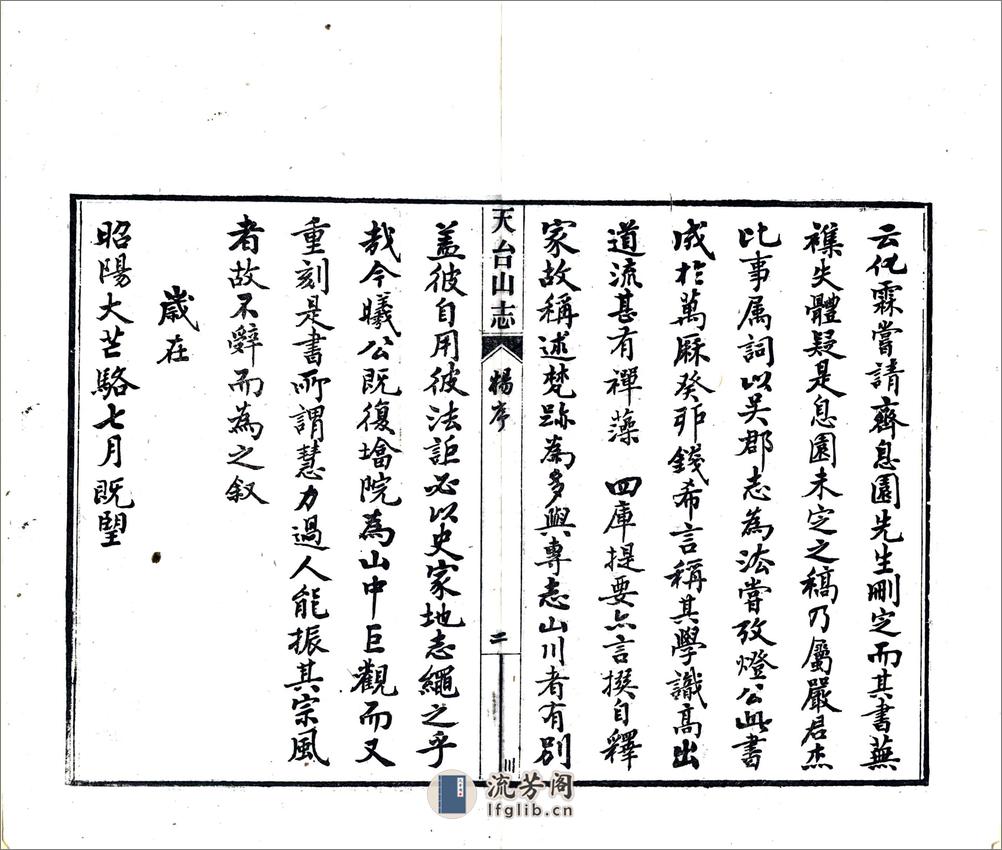 云化霖嘗請齊息園先生刪定而其書蕪
襍失體疑是息園未定之稿乃屬嚴君杰
比事属詞以吴郡志為法嘗攷燈公此書
成於萬厤癸丣錢希言稱其學識高出
道流甚有禪藻　四庫提要亦言撰自釋
家故稱述梵跡為多與專志山川者有别
天台山志
楊序
二
川
盖彼自用彼法詎必以史家地志繩之乎
哉今曦公既復墖院為山中巨觀而又
重刻是書所謂慧力過人能振其宗風
者故不辭而為之叙
歲在
昭陽大芒駱七月既望
流芳阁
lfglib.cn